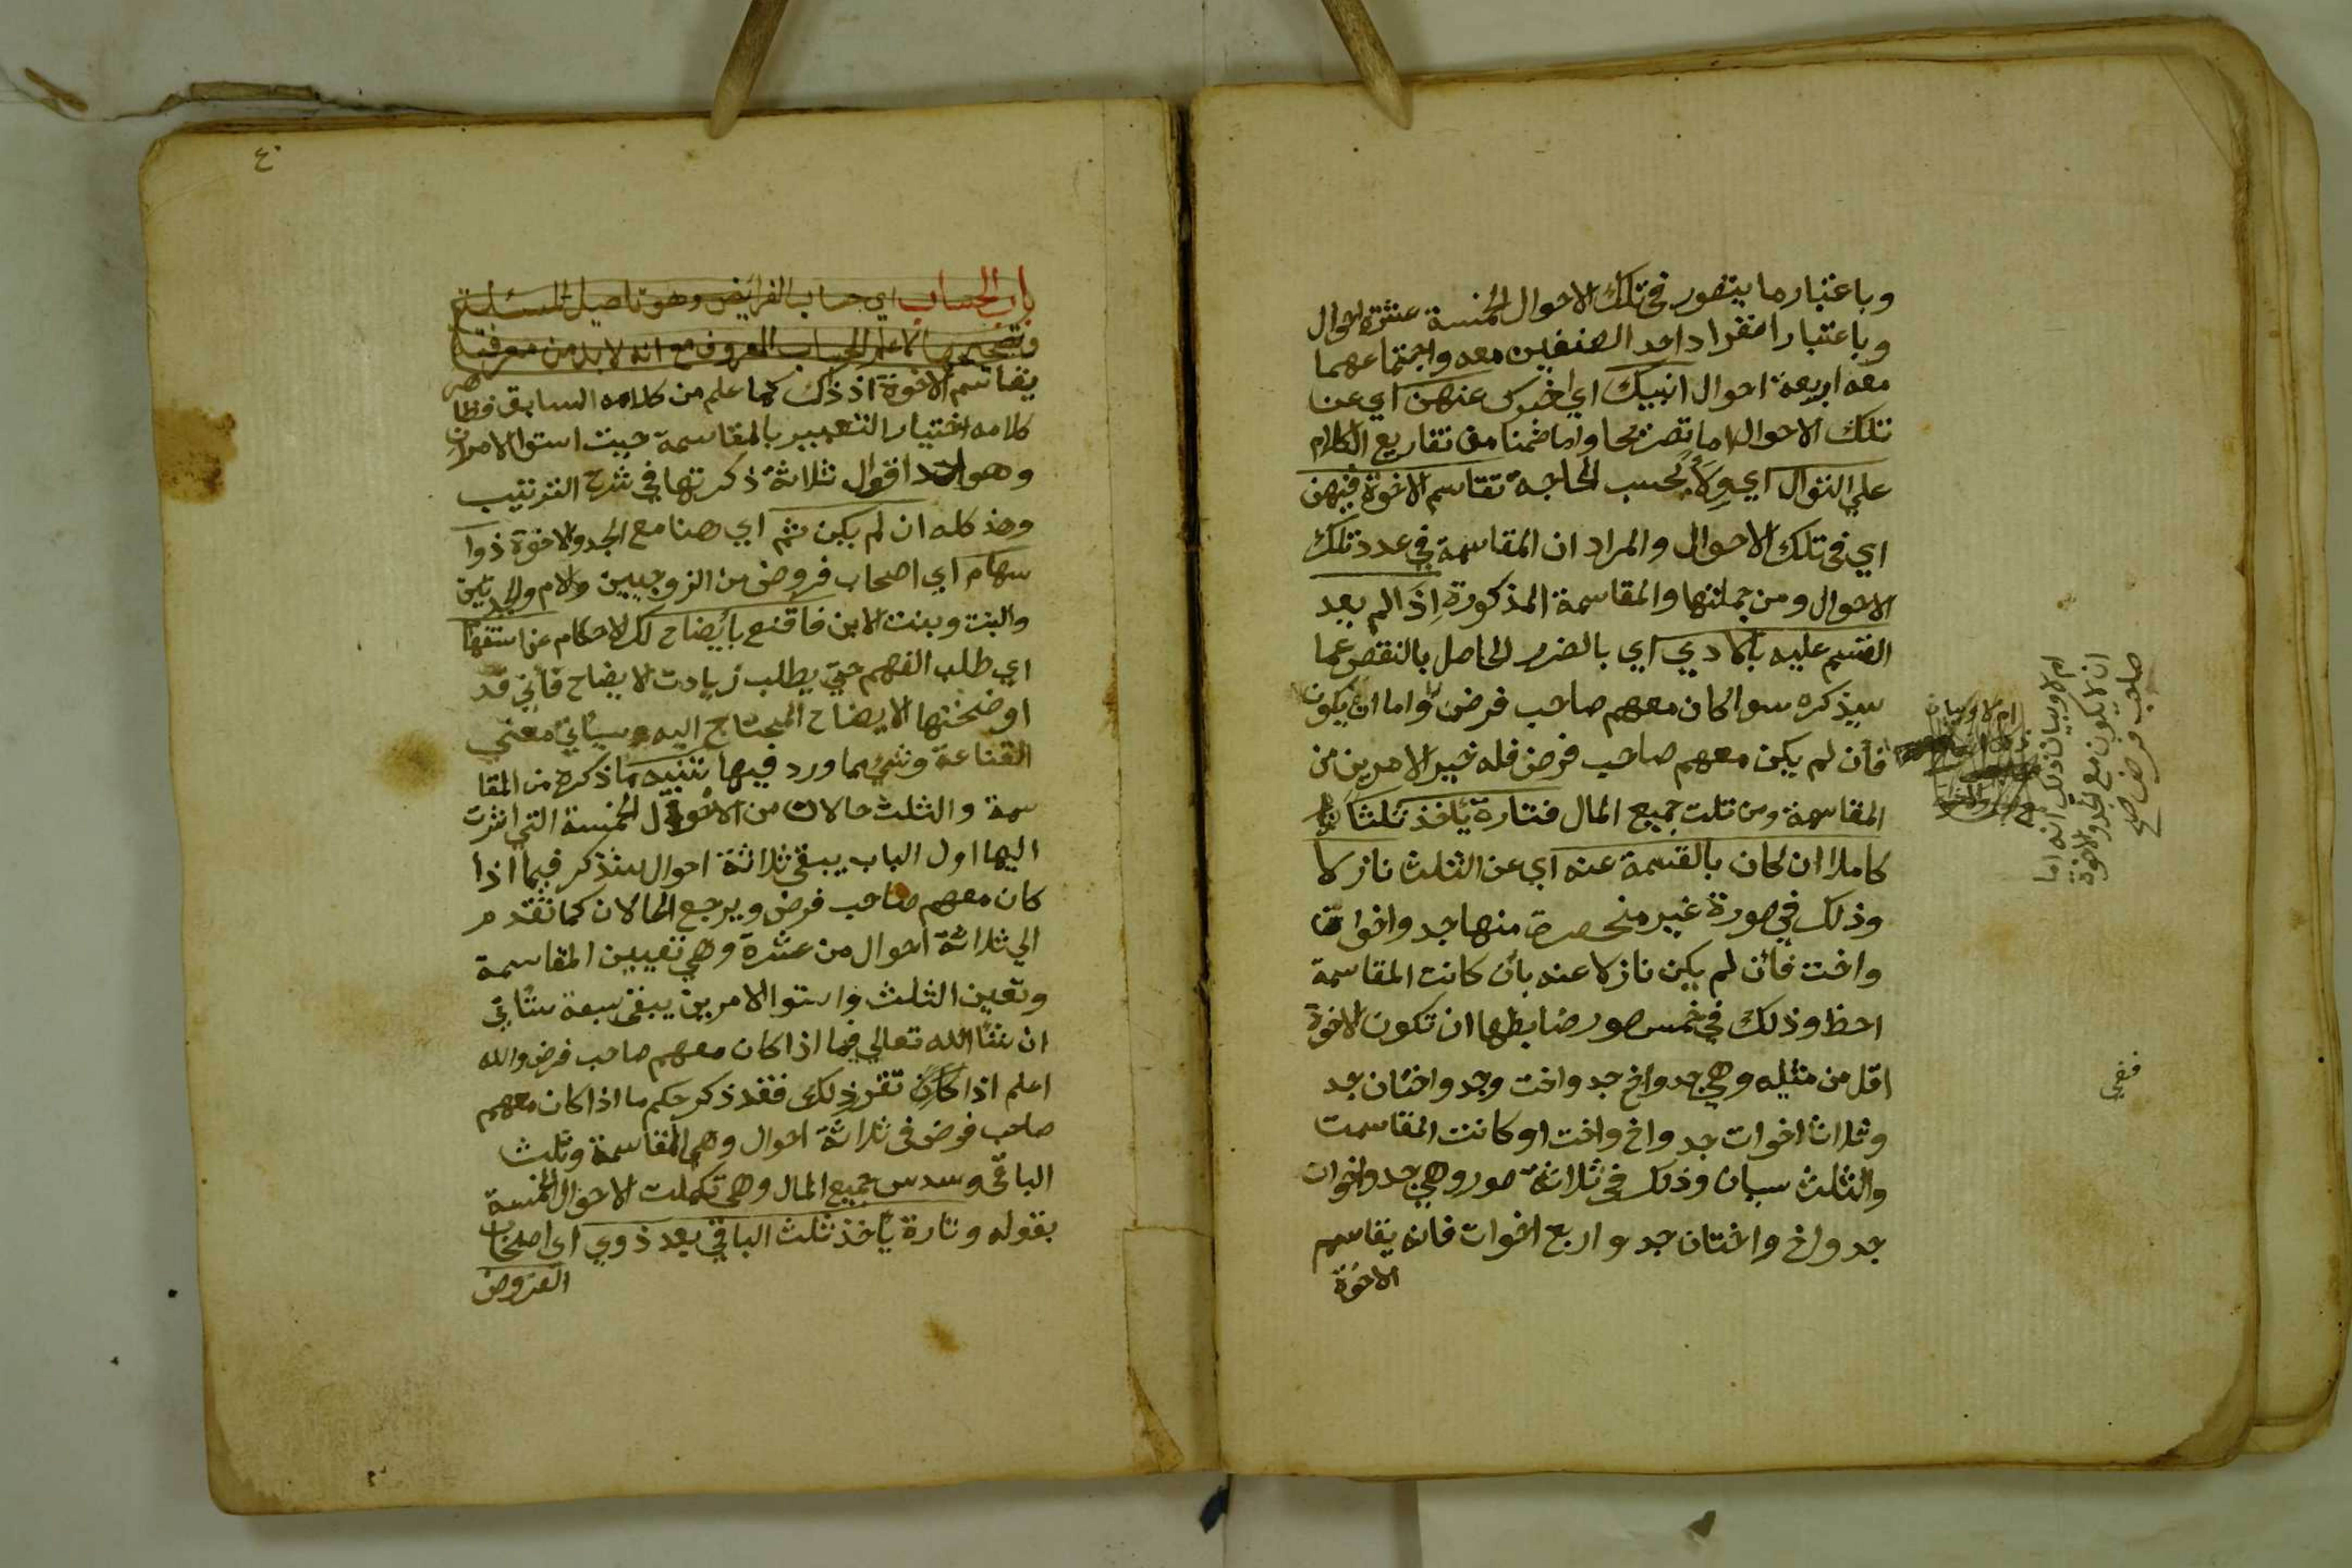 وباعتبار ما يتصور في تلك الاحوال الخمسة عشرة احوال
وباعتبار انفراد احد الصنفين معه واجتماعهما
معه اربعة احوال انبيك اي اخبرك عنهن اي عن
تلك الاحوال اما تصريحا واما ضمنا من تفاريع الكلام
علي التوال اي ولاء بحسب الحاجة تقاسم الاخوة فيهن
اي في تلك الاحوال والمراد ان المقاسمة في عدد تلك
الاحوال ومن جملتها والمقاسمة المذكورة اذا لم يعد
القسم عليه بالاذي اي بالضرر الحاصل بالنقص عما
سيذكره سوا كان معهم صاحب فرض واما ان يكون
فان لم يكن معهم صاحب فرض فله خير الامرين من
المقاسمة ومن ثلث جميع المال فتارة يأخذ ثلثا
كاملا ان كان بالقسمة عنه اي عن الثلث نازلا
وذلك في صورة غير منحصرة منها جد واخوان
واخت فأن لم يكن نازلا عنه بأن كانت المقاسمة
احظ وذلك في خمس صور ضابطها ان تكون الاخوة
اقل من مثليه وهي جد واخ جد واخت وجد واختان جد
وثلاث اخوات جد واخ واخت او كانت المقاسمت
والثلث سيان وذلك في ثلاثة صور وهي جد واخوان
جد واخ واختان جد واربع اخوات فانه يقاسم
الاخوة
ام لا وبيان ذلك انه اما
ان لا يكون مع الجد والاخوة
صاحب فرض صح
ففي
٤٠
باب الحساب اي حساب الفرائض وهو تأصيل المسئلة
وتصحيحها لا علم الحساب المعروف مع انه لابد من معرفته
يقاسم الاخوة اذ ذاك كما علم من كلامه السابق فظاهر
كلامه اختيار التعبير بالمقاسمة حيث استوا الامران
وهو احد اقوال ثلاثة ذكرتها في شرح الترتيب
وهذ كله ان لم يكن ثم اي هنا مع الجد والاخوة ذوا
سهام اي اصحاب فروض من الزوجيين والام والجدتين
والبنت وبنت الابن فاقنع بأيضاح لك الاحكام عن استفها
اي طلب الفهم حتي يطلب زيادت الايضاح فأني قد
اوضحتها الايضاح المحتاج اليه وسيأتي معني
القناعة وشي مما ورد فيها تنبيه ما ذكره من المقا
سمة والثلث حالان من الاحوال الخمسة التي اشرت
اليها اول الباب يبقي ثلاثة احوال ستذكر فيما اذا
كان معهم صاحب فرض ويرجع الحالان كما تقدم
الي ثلاثة احوال من عشرة وهي تعيين المقاسمة
وتعين الثلث واستوا الامرين يبقي سبعة ستأتي
ان شا الله تعالي فيما اذا كان معهم صاحب فرض والله
اعلم اذا كان تقرر ذلك فقد ذكر حكم ما اذا كان معهم
صاحب فرض في ثلاثة احوال وهي المقاسمة وثلث
الباقي وسدس جميع المال وهي تكملت الاحوال الخمسة
بقوله وتارة يأخذ ثلث الباقي بعد ذوي اي اصحاب
الفروض